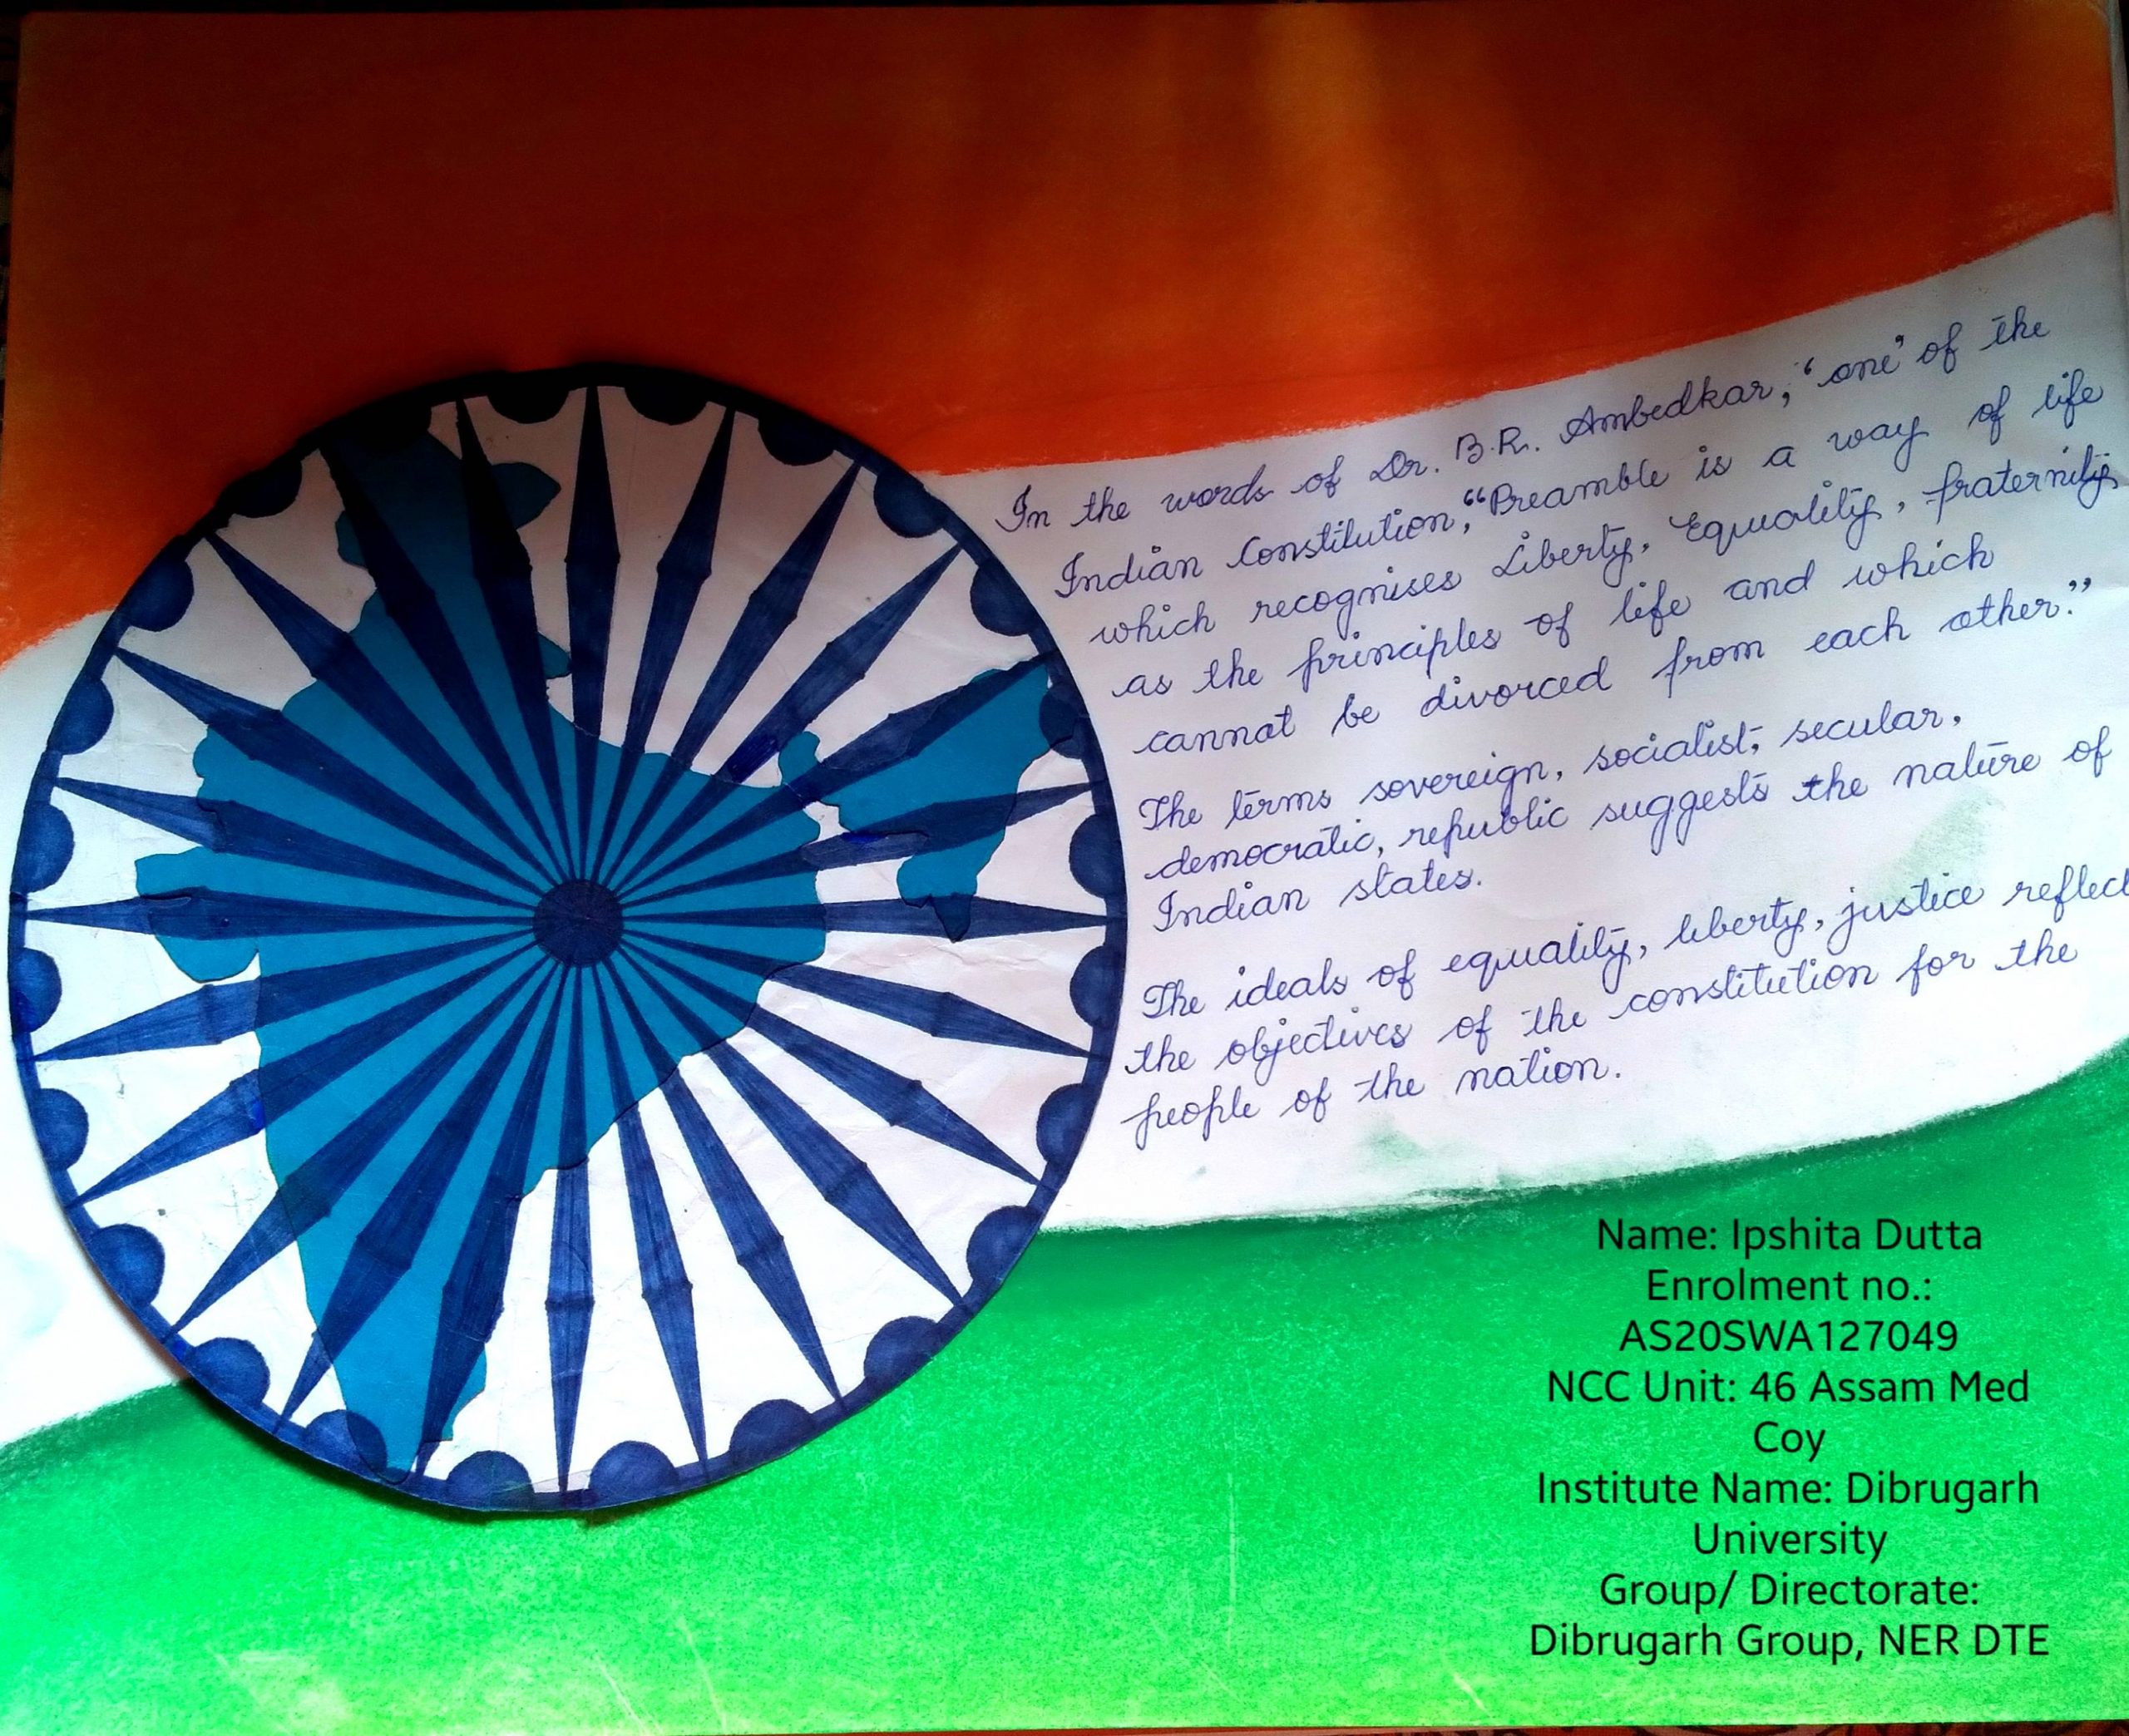 In the words of Dr. B.R. Ambedkar, "one" of the
Indian Constitution, "Preamble is a way of life
which recognises Liberty, Equality, fraternity
as the principles of life and which
cannot be divorced from each other."
The terms sovereign, socialist, secular,
democratic, republic suggests the nature of
Indian states.
The ideals of equality, liberty, justice reflect
the objectives of the constitution for the
people of the nation.
Name: Ipshita Dutta
Enrolment no.:
AS20SWA127049
NCC Unit: 46 Assam Med
Coy
Institute Name: Dibrugarh
University
Group/ Directorate:
Dibrugarh Group, NER DTE